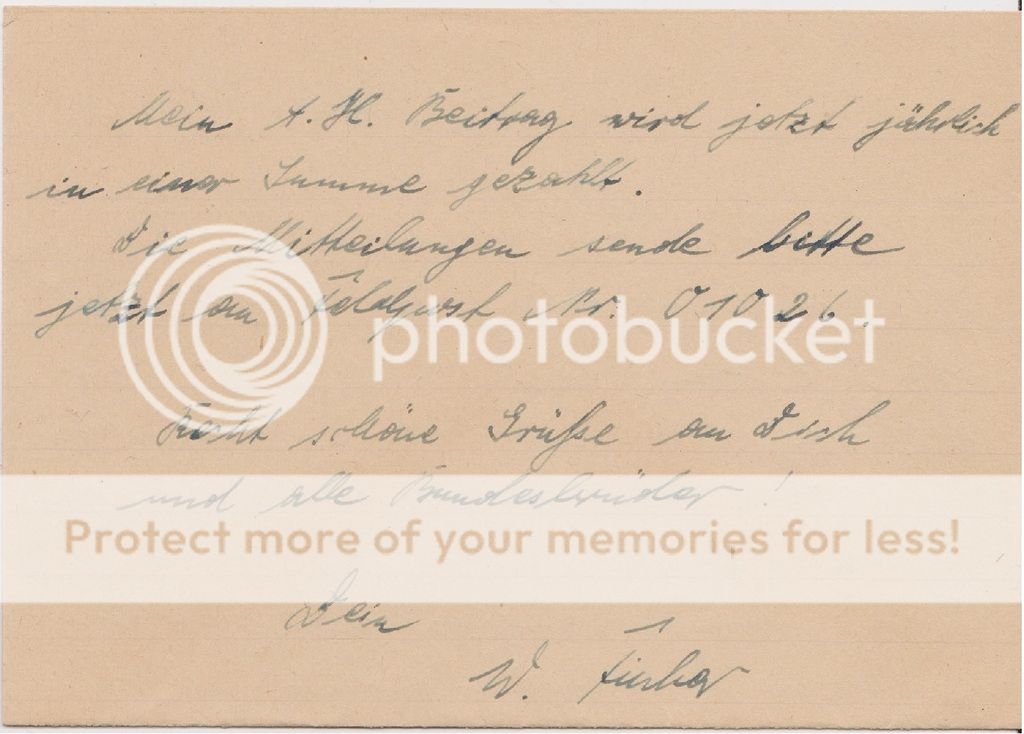 Mein A. H. Beitrag wird jetzt jährlich
in einer Summe gezahlt.
Die Mitteilungen sende bitte
jetzt an Feldpost Nr. 01026.
photobucket
Recht schöne Grüße an Dich
und alle Bundesbrüder!
Protect more of your memories for less!
Dein
W.